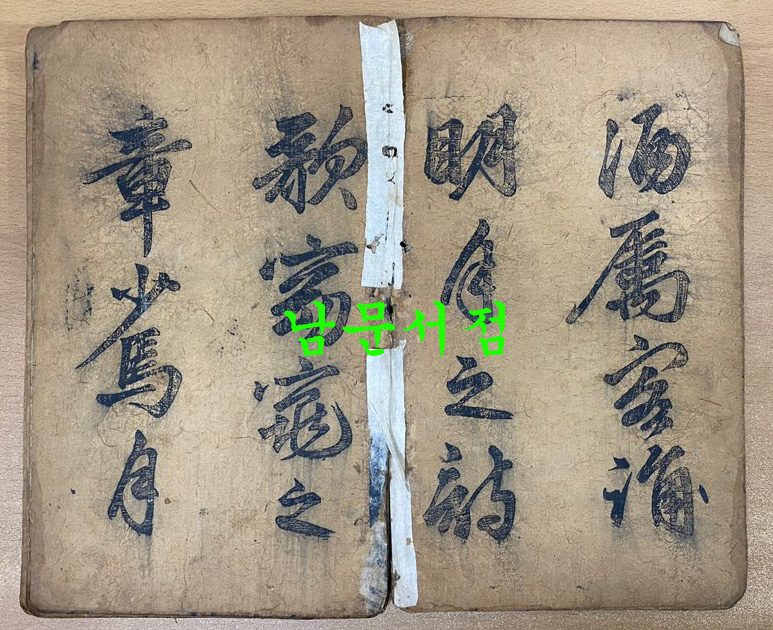 酒屬客誦
明月之詩
歌窈窕之
章少焉月
남문서점